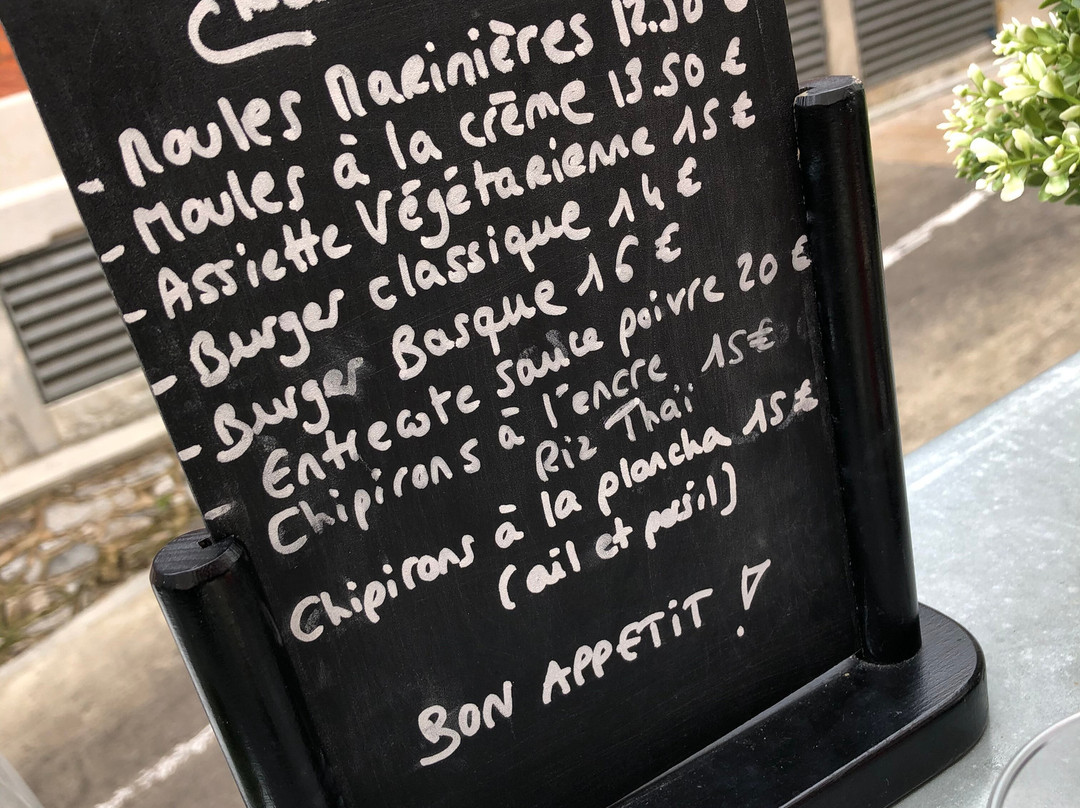 - Moules Marinières 12.50 €
- Moules à la crème 13.50 €
- Assiette Végétarienne 15 €
- Burger classique 14 €
- Burger Basque 16 €
Entrecote sauce poivre 20 €
Chipirons à l'encre 15 €
Riz Thaï
Chipirons à la plancha 15 €
(ail et persil)
BON APPETIT !